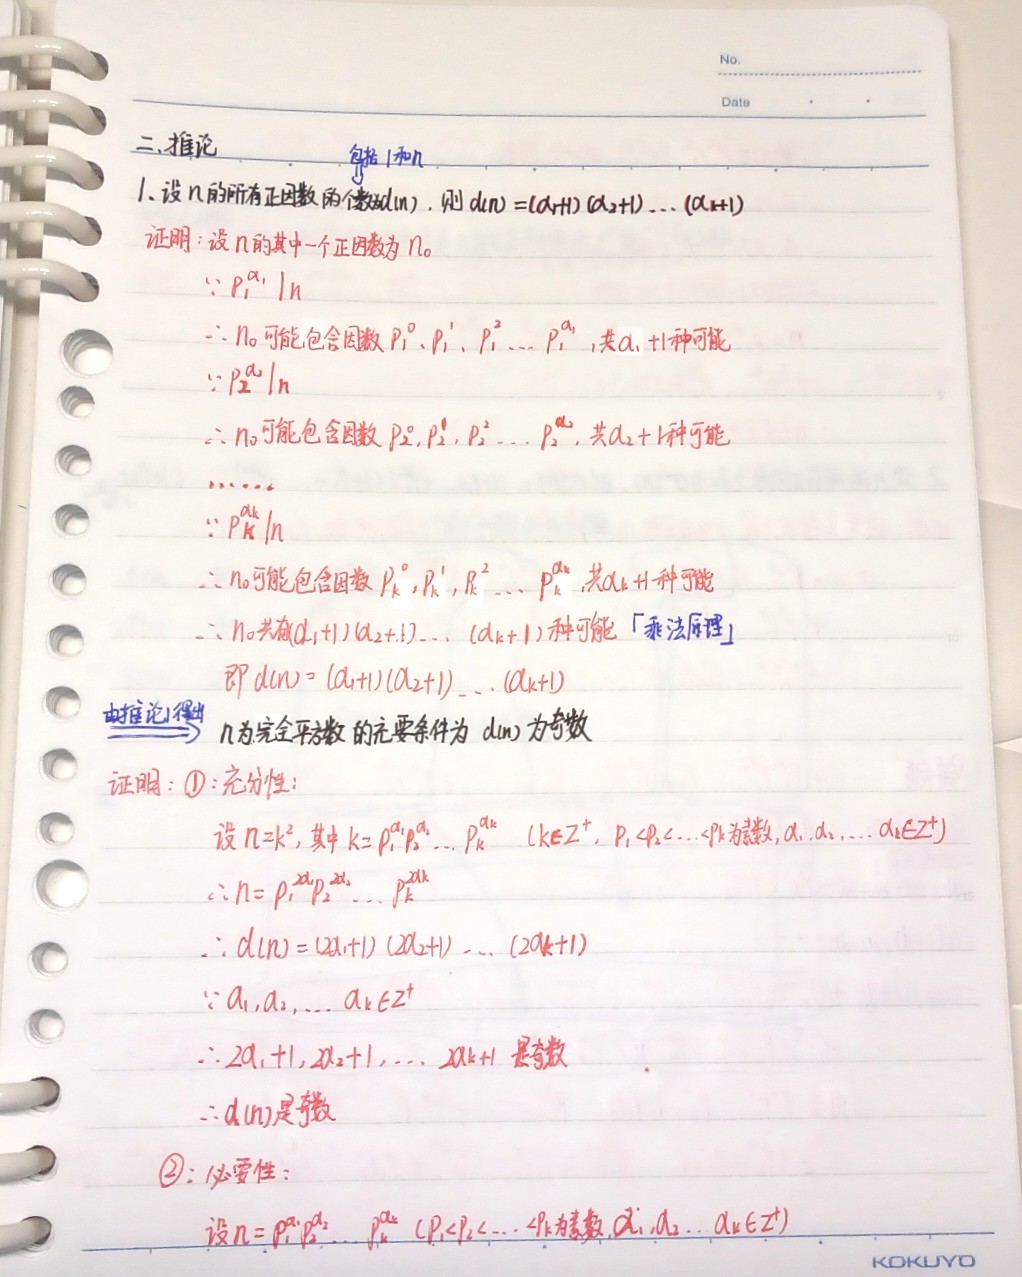 No.
Date
二、推论
包括1和n
1、设n的所有正因数的个数为d(n),则d(n)=(α₁+1)(α₂+1)...(αₖ+1)
证明:设n的其中一个正因数为n₀
∵ p₁^α₁ | n
∴ n₀可能包含因数 p₁⁰、p₁¹、p₁²...p₁^α₁,共α₁+1种可能
∵ p₂^α₂ | n
∴ n₀可能包含因数 p₂⁰,p₂¹,p₂²...p₂^α₂,共α₂+1种可能
......
∵ pₖ^αₖ | n
∴ n₀可能包含因数 pₖ⁰,pₖ¹,pₖ²...pₖ^αₖ,共αₖ+1种可能
∴ n₀共有(α₁+1)(α₂+1)...(αₖ+1)种可能「乘法原理」
即d(n)=(α₁+1)(α₂+1)...(αₖ+1)
由推论1得出
n为完全平方数的充要条件为 d(n)为奇数
证明:①:充分性:
设n=k²,其中k=p₁^α₁p₂^α₂...pₖ^αₖ (k∈Z⁺, p₁<p₂<...<pₖ为素数,α₁,α₂,...αₖ∈Z⁺)
∴ n=p₁^2α₁p₂^2α₂...pₖ^2αₖ
∴ d(n)=(2α₁+1)(2α₂+1)...(2αₖ+1)
∵ α₁,α₂,...αₖ∈Z⁺
∴ 2α₁+1,2α₂+1,...2αₖ+1 是奇数
∴ d(n)是奇数
②:必要性:
设n=p₁^α₁p₂^α₂...pₖ^αₖ (p₁<p₂<...<pₖ为素数,α₁,α₂...αₖ∈Z⁺)
KOKUYO